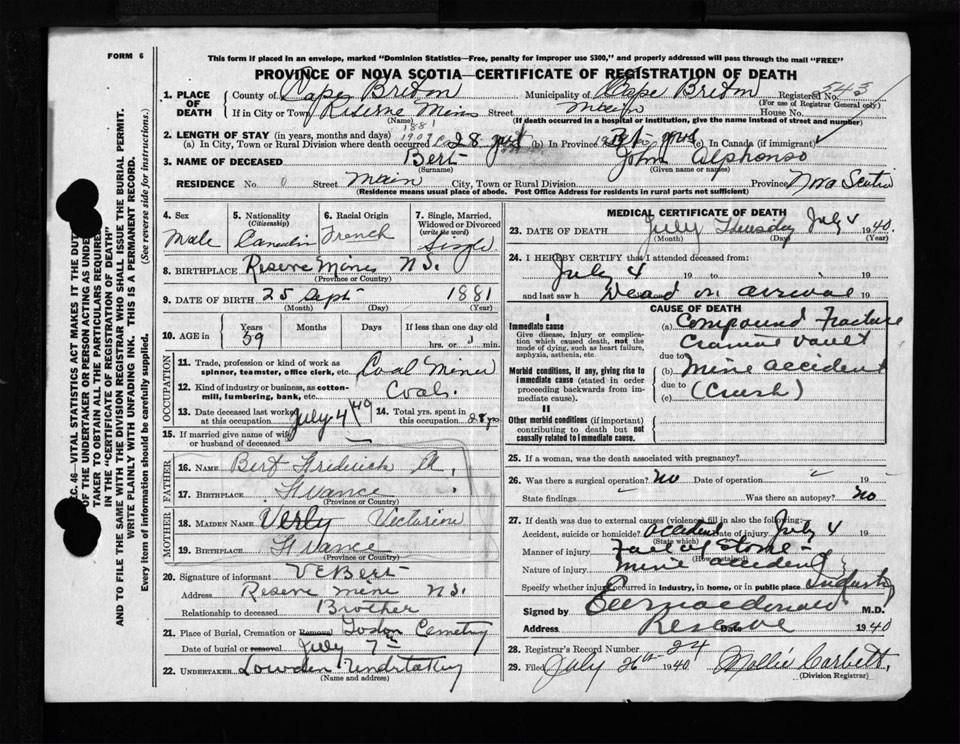 FORM 6
This form if placed in an envelope, marked "Dominion Statistics—Free, penalty for improper use $300," and properly addressed will pass through the mail "FREE"
PROVINCE OF NOVA SCOTIA—CERTIFICATE OF REGISTRATION OF DEATH
1. PLACE OF DEATH { County of Cape Breton Municipality of Cape Breton Registered No. 543
(For use of Registrar General only)
If in City or Town Reserve Mines Street Main House No.
(Name) (If death occurred in a hospital or institution, give the name instead of street and number)
2. LENGTH OF STAY (in years, months and days)
(a) In City, Town or Rural Division where death occurred 28 yrs (b) In Province (c) In Canada (if immigrant)
3. NAME OF DECEASED Bert John Alphonso
(Surname) (Given name or names)
RESIDENCE No. 0 Street Main City, Town or Rural Division Province Nova Scotia
(Residence means usual place of abode. Post Office Address for residents in rural parts not sufficient)
4. Sex Male
5. Nationality (Citizenship) Canadin
6. Racial Origin French
7. Single, Married, Widowed or Divorced (write the word) Single
8. BIRTHPLACE Reserve Mines N S.
(Province or Country)
9. DATE OF BIRTH 25 Sept 1881
(Month) (Day) (Year)
10. AGE in { Years 59 Months Days If less than one day old hrs. or min.
OCCUPATION
11. Trade, profession or kind of work as spinner, teamster, office clerk, etc. Coal Miner
12. Kind of industry or business, as cotton-mill, lumbering, bank, etc. Coal.
13. Date deceased last worked at this occupation July 4/40 14. Total yrs. spent in this occupation 28 yrs
15. If married give name of wife or husband of deceased
FATHER
16. NAME Bert Fridrick
17. BIRTHPLACE France
(Province or Country)
MOTHER
18. MAIDEN NAME Verly Victorine
19. BIRTHPLACE France
(Province or Country)
20. Signature of informant V E Bert
Address Reserve mine N S.
Relationship to deceased Brother
21. Place of Burial, Cremation or Removal Cemetery
Date of burial or removal July 7th
22. UNDERTAKER Lowden Undertaking
(Name and address)
MEDICAL CERTIFICATE OF DEATH
23. DATE OF DEATH July Thursday July 4 1940.
(Month) (Day) (Year)
24. I HEREBY CERTIFY that I attended deceased from:
July 4 19 to 19
and last saw h Dead on arrival 19
CAUSE OF DEATH
I
Immediate cause
Give disease, injury or complication which caused death, not the mode of dying, such as heart failure, asphyxia, asthenia, etc.
(a) Compound Fracture
Cranial Vault
due to
Morbid conditions, if any, giving rise to immediate cause (stated in order proceeding backwards from immediate cause).
(b) Mine accident
due to
(c) (Crush)
II
Other morbid conditions (if important) contributing to death but not causally related to immediate cause.
25. If a woman, was the death associated with pregnancy?
26. Was there a surgical operation? No Date of operation 19
State findings Was there an autopsy? No
27. If death was due to external causes (violence) fill in also the following:
Accident, suicide or homicide? accident Date of injury July 4 19
(State which)
Manner of injury Fall of Stone -
(How sustained)
Nature of injury mine accident
Specify whether injury occurred in industry, in home, or in public place Industry
Signed by Macdonald M.D.
Address Reserve Date 1940
28. Registrar's Record Number 24
29. Filed July 26th 1940. Mollie Corbett.
(Division Registrar)
SEC. 46 — VITAL STATISTICS ACT MAKES IT THE DUTY OF THE UNDERTAKER OR PERSON ACTING AS UNDERTAKER TO OBTAIN ALL THE PARTICULARS REQUIRED IN THE "CERTIFICATE OF REGISTRATION OF DEATH"
AND TO FILE THE SAME WITH THE DIVISION REGISTRAR WHO SHALL ISSUE THE BURIAL PERMIT.
WRITE PLAINLY WITH UNFADING INK. THIS IS A PERMANENT RECORD.
Every item of information should be carefully supplied. (See reverse side for instructions.)